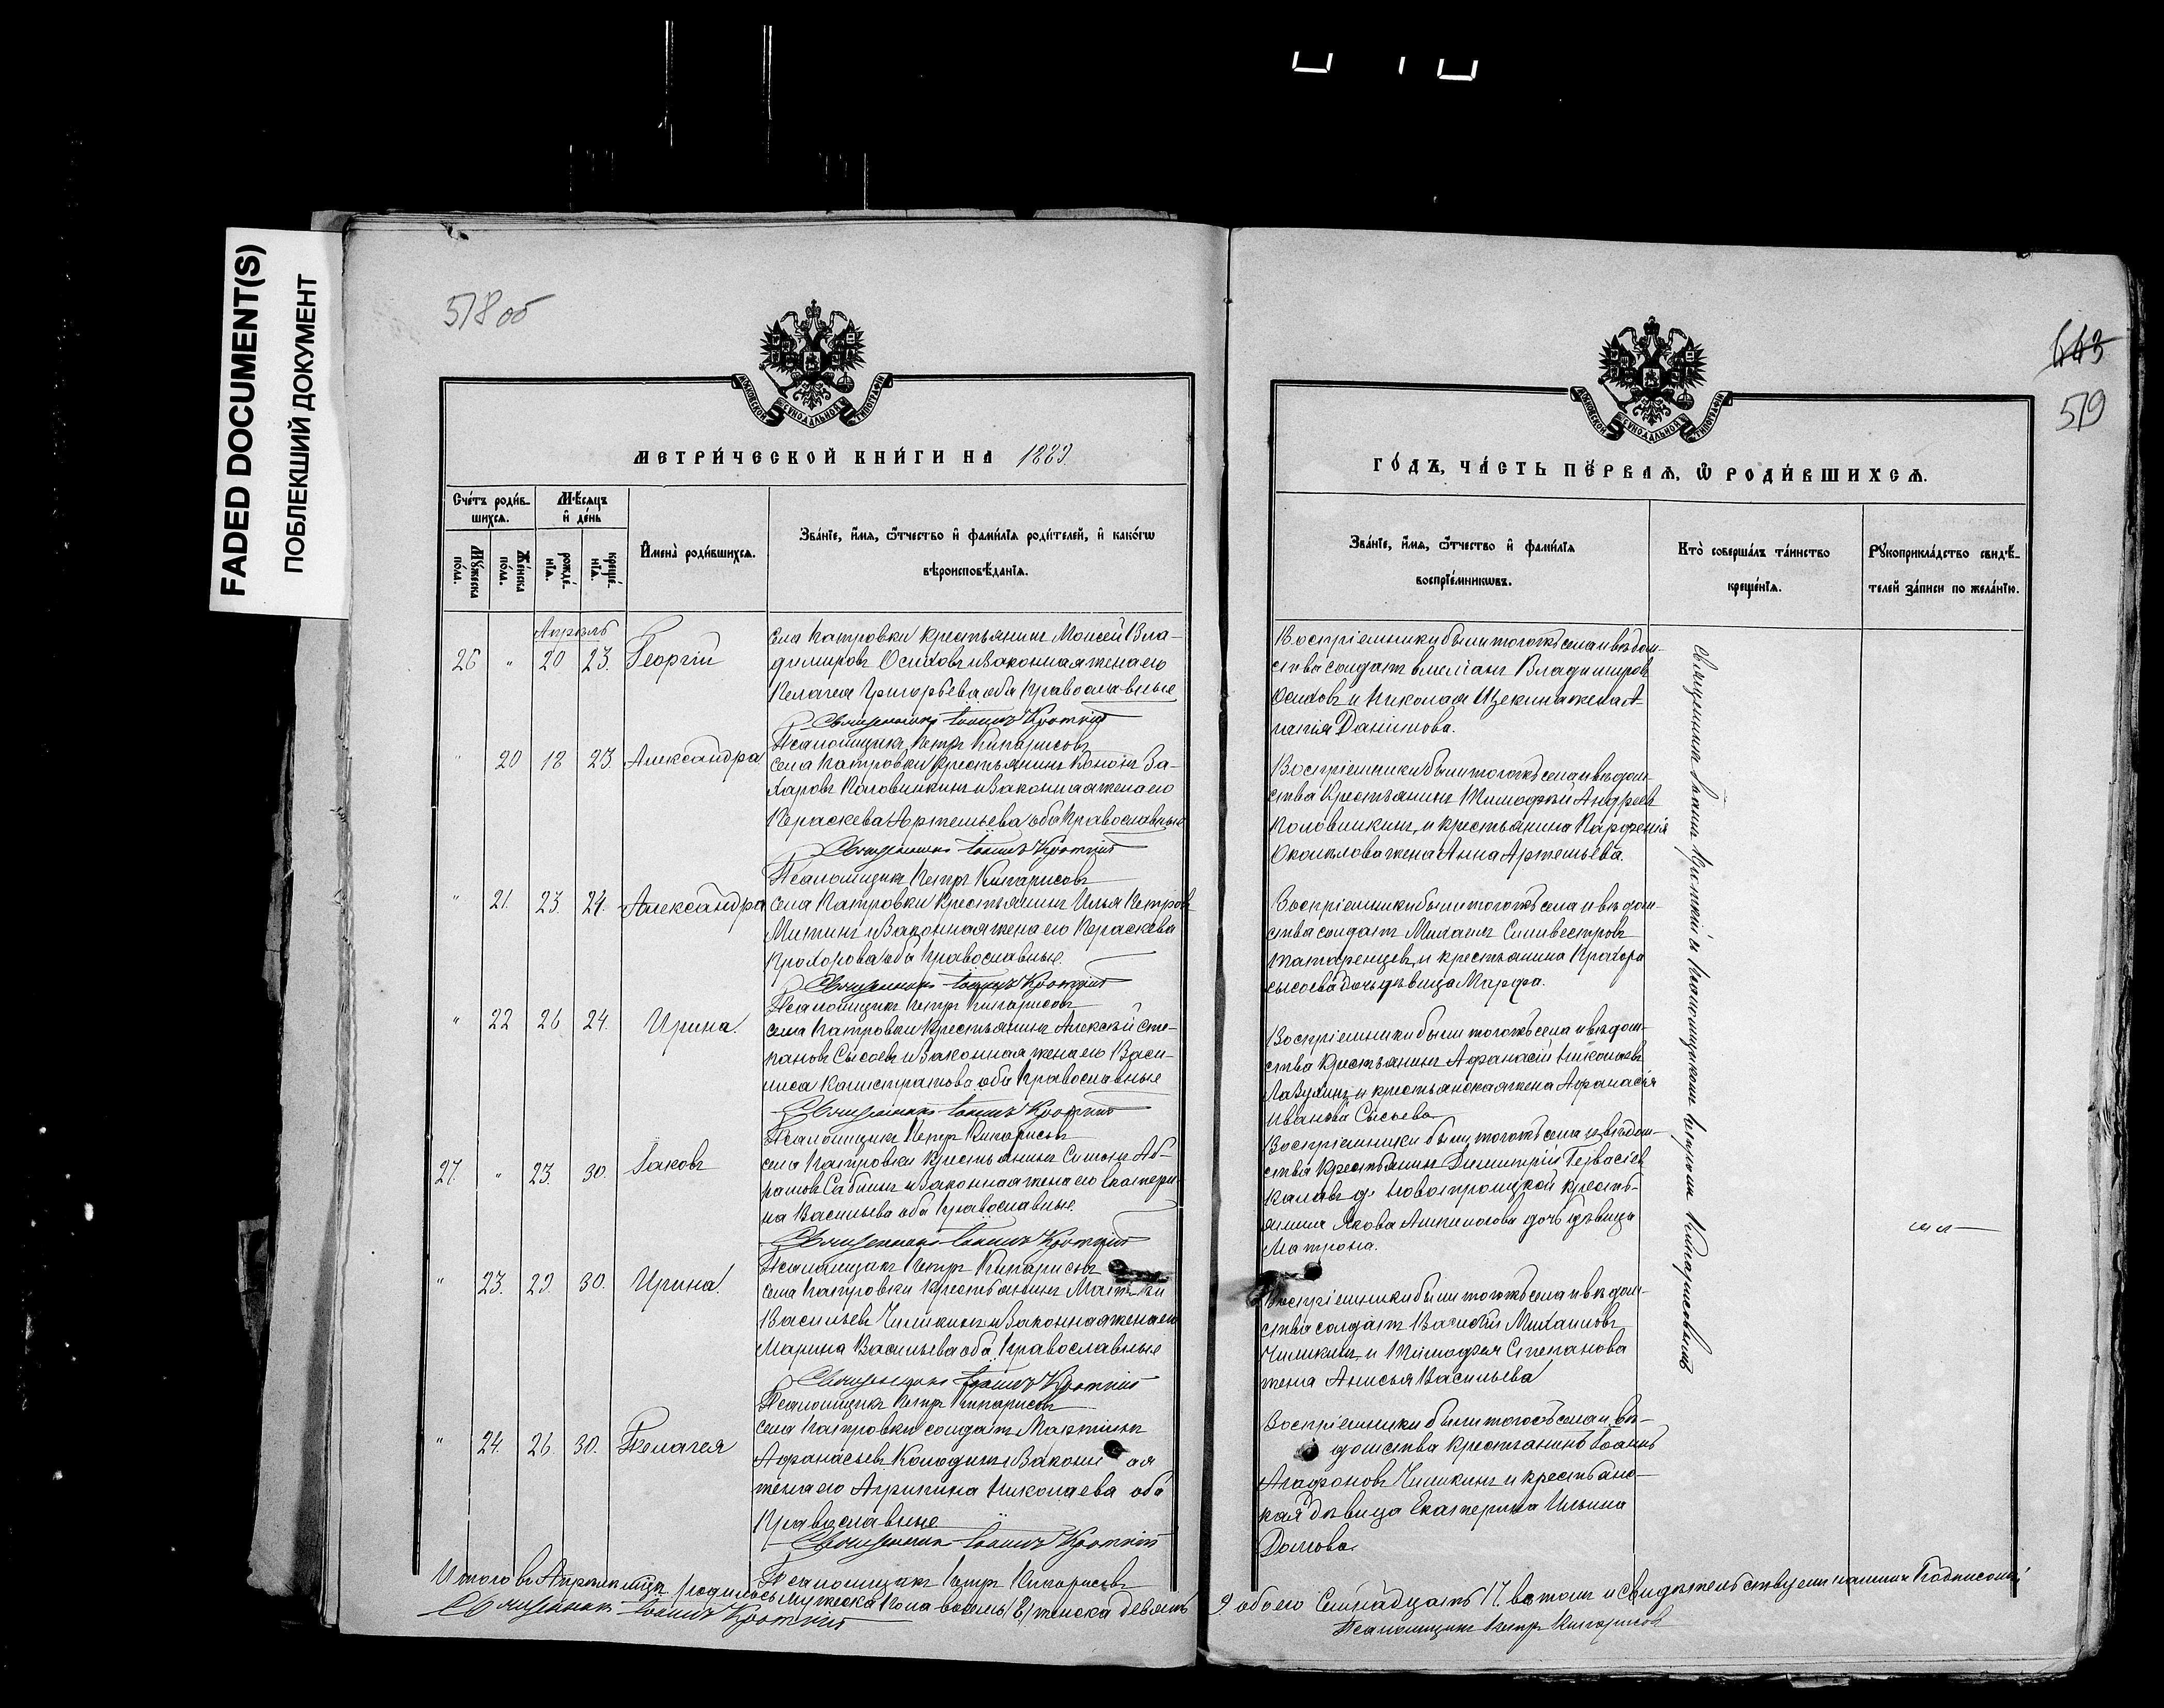 FADED DOCUMENT(S)
ПОБЛЕКШИЙ ДОКУМЕНТ
518 об
МОСКОВСКОЙ СѴНОДАЛЬНОЙ ТИПОГРАФІИ
МЕТРИ́ЧЕСКОЙ КНИ́ГИ НА 1889.
Сче́тъ роди́в-
шихся.
Мѣ́сяцъ
и҆ де́нь
Мꙋ́жеска
по́ла.
Же́нска
по́ла.
рожде́-
нїѧ.
креще́-
нїѧ.
И҆мена̀ роди́вшихсѧ.
Зва́нїе, и҆́мѧ, ѻ҆́тчество и҆ фами́лїѧ роди́телей, и҆ како́гѡ
вѣроисповѣ́данїѧ.
Апрѣль
26 " 20 23. Георгій
села Патровки крестьянинъ Моисей Вла-
димировъ Осиховъ и законная жена его
Пелагея Григорьева оба православные
Священникъ Іоаннъ Кроткій
Псаломщикъ Петръ Кипарисовъ
" 20 18 23. Александра
села Патровки крестьянинъ Кононъ За-
харовъ Половинкинъ и законная жена его
Параскева Артемьева оба православные
Священникъ Іоаннъ Кроткій
Псаломщикъ Петръ Кипарисовъ
" 21. 23. 24. Александра
села Патровки крестьянинъ Илья Петровъ
Митинъ и законная жена его Параскева
Прохорова оба православные.
Священникъ Іоаннъ Кроткій
Псаломщикъ Петръ Кипарисовъ
" 22 26. 24. Ирина.
села Патровки крестьянинъ Алексѣй Сте-
пановъ Сысоевъ и законная жена его Васи-
лиса Калистратова оба православные
Священникъ Іоаннъ Кроткій
Псаломщикъ Петръ Кипарисовъ
27. " 23. 30. Іаковъ
села Патровки крестьянинъ Симеонъ Аб-
рамовъ Саблинъ и законная жена его Екатери-
на Васильева оба православные.
Священникъ Іоаннъ Кроткій
Псаломщикъ Петръ Кипарисовъ
" 23. 29. 30. Ирина.
села Патровки крестьянинъ Матвѣй
Васильевъ Чишкинъ и законная жена его
Марина Васильева оба православные
Священникъ Іоаннъ Кроткій
Псаломщикъ Петръ Кипарисовъ
" 24. 26. 30. Пелагея
села Патровки солдатъ Мартинъ
Афанасьевъ Колодинъ и закон ая
жена его Агрипина Николаева оба
Православные
Священникъ Іоаннъ Кроткій
Псаломщикъ Петръ Кипарисовъ
Итого въ Апрѣлѣ мцѣ родилось мужеска пола восемь (8) женска девять
Священникъ Іоаннъ Кроткій
443
519
МОСКОВСКОЙ СѴНОДАЛЬНОЙ ТИПОГРАФІИ
ГО́ДЪ, ЧА́СТЬ ПЕ́РВАѦ, Ѡ҆ РОДИ́ВШИХСѦ.
Зва́нїе, и҆́мѧ, ѻ҆́тчество и҆ фами́лїѧ
воспрїе́мникѡвъ.
Кто̀ соверша́лъ та́инство
креще́нїѧ.
Рꙋкоприкла́дство свидѣ́-
телей за́писи по жела́нїю.
Воспріемники были тогожъ села и вѣдом-
ства солдатъ Емеліанъ Владимировъ
Осиховъ и Николая Щекина жена А-
гапія Даніилова.
Воспріемники были тогожъ села и вѣдом-
ства крестьянинъ Тимофѣй Андреевъ
Половинкинъ, и крестьянина Парфенія
жена Анна Артемьева.
Воспріемники были тогожъ села и вѣдом-
ства солдатъ Михаилъ Сильвестровъ
Татаренцевъ, и крестьянина Прохора
Сысоева дочь дѣвица Марфа.
Воспріемники были тогожъ села и вѣдом-
ства крестьянинъ Афанасій Николаевъ
Лазухинъ, и крестьянская жена Афанасія
Иванова Сысоева
Воспріемники были тогожъ села и вѣдом-
ства крестьянинъ Димитрій Гервасіевъ
д. Новотроицкой кресть-
янина Якова дочь дѣвица
Матрона.
Воспріемники были тогожъ села и вѣдом-
ства солдатъ Василій Михаиловъ
Чишкинъ, и Тимофея Степанова
жена Анисья Васильева
Воспріемники были тогожъ села и вѣ-
домства крестьянинъ Іоаннъ
Агафоновъ Чишкинъ и крестьянс-
кая дѣвица Екатерина Ильина
Долгова.
Священникъ Іоаннъ Кроткій съ псаломщикомъ Петромъ Кипарисовымъ
9 обоего семнадцать 17. въ томъ и свидѣтельствуемъ нашимъ подписомъ
Псаломщикъ Петръ Кипарисовъ